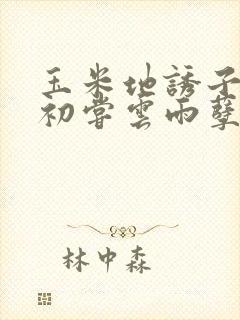 玉米地誘子
初嘗雲雨孽
林中森